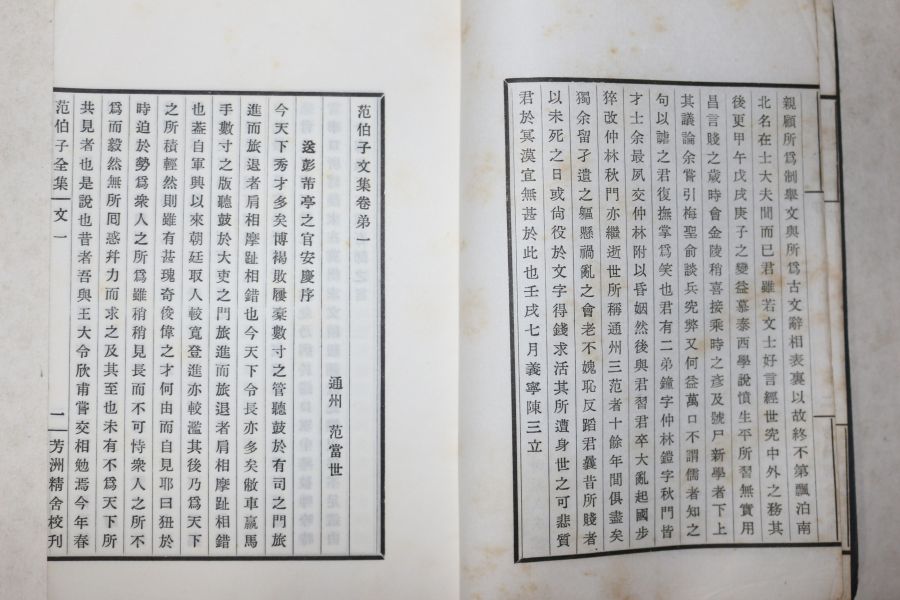 親顧所爲制舉文與所爲古文辭相表裏以故終不第飄泊南
北名在士大夫間而已君雖若文士好言經世究中外之務其
後更甲午戊戌庚子之變益慕泰西學說憤生平所習無實用
昌言賤之歲時會金陵稍喜接乘時之彥及號尸新學者下上
其議論余嘗引梅聖俞談兵究弊又何益萬口不謂儒者知之
句以謔之君復撫掌爲笑也君有二弟鐘字仲林鎧字秋門皆
才余最夙交仲林附以昏姻然後與君習君卒大亂起國步
猝改仲林秋門亦繼逝世所稱通州三范者十餘年間俱盡矣
獨余留孑遺之軀懸禍亂之會老不媿恥反蹈君曩昔所賤者
以未死之日或尙役於文字得錢求活其所遭身世之可悲質
君於冥漠宜無甚於此也壬戌七月義寧陳三立
范伯子文集卷弟一
通州 范當世
送彭芾亭之官安慶序
今天下秀才多矣博褐敗屨槖數寸之管聽鼓於有司之門旅
進而旅退者肩相摩趾相錯也今天下令長亦多矣敝車羸馬
手數寸之版聽鼓於大吏之門旅進而旅退者肩相摩趾相錯
也蓋自軍興以來朝廷取人較寬登進亦較濫其後乃爲天下
之所積輕然則雖有甚瑰奇俊偉之才何由而自見耶曰狃於
時迫於勢爲衆人之所爲雖稍稍見長而不可恃衆人之所不
爲而毅然無所囘惑幷力而求之及其至也未有不爲天下所
共見者也是說也昔者吾與王大令欣甫嘗交相勉焉今年春
范伯子全集 文一 二 芳洲精舍校刊